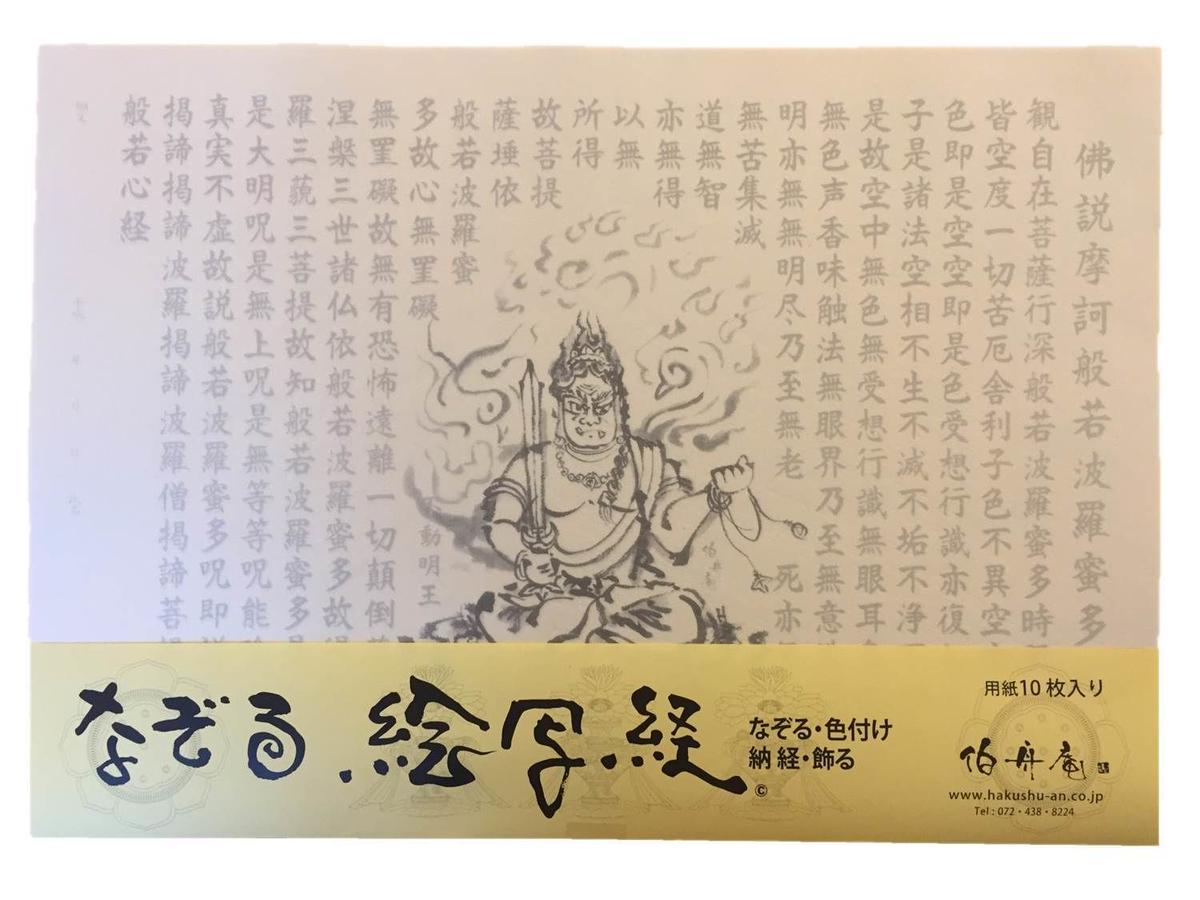 佛説摩訶般若波羅蜜多
観自在菩薩行深般若波羅蜜多時
皆空度一切苦厄舎利子色不異空
色即是空空即是色受想行識亦復
子是諸法空相不生不滅不垢不浄
是故空中無色無受想行識無眼耳
無色声香味触法無眼界乃至無意
明亦無無明尽乃至無老 死亦無
無苦集滅
道無智
亦無得
以無
所得
故菩提
薩埵依
般若波羅蜜
多故心無罣礙
無罣礙故無有恐怖遠離一切顛倒
涅槃三世諸仏依般若波羅蜜多故
羅三藐三菩提故知般若波羅蜜多
是大明呪是無上呪是無等等呪能
真実不虚故説般若波羅蜜多呪即
掲諦掲諦波羅掲諦波羅僧掲諦菩
般若心経
動明王
伯舟庵
なぞる 絵写経
©
なぞる・色付け
納経・飾る
用紙10枚入り
伯舟庵
www.hakushu-an.co.jp
Tel : 072・438・8224